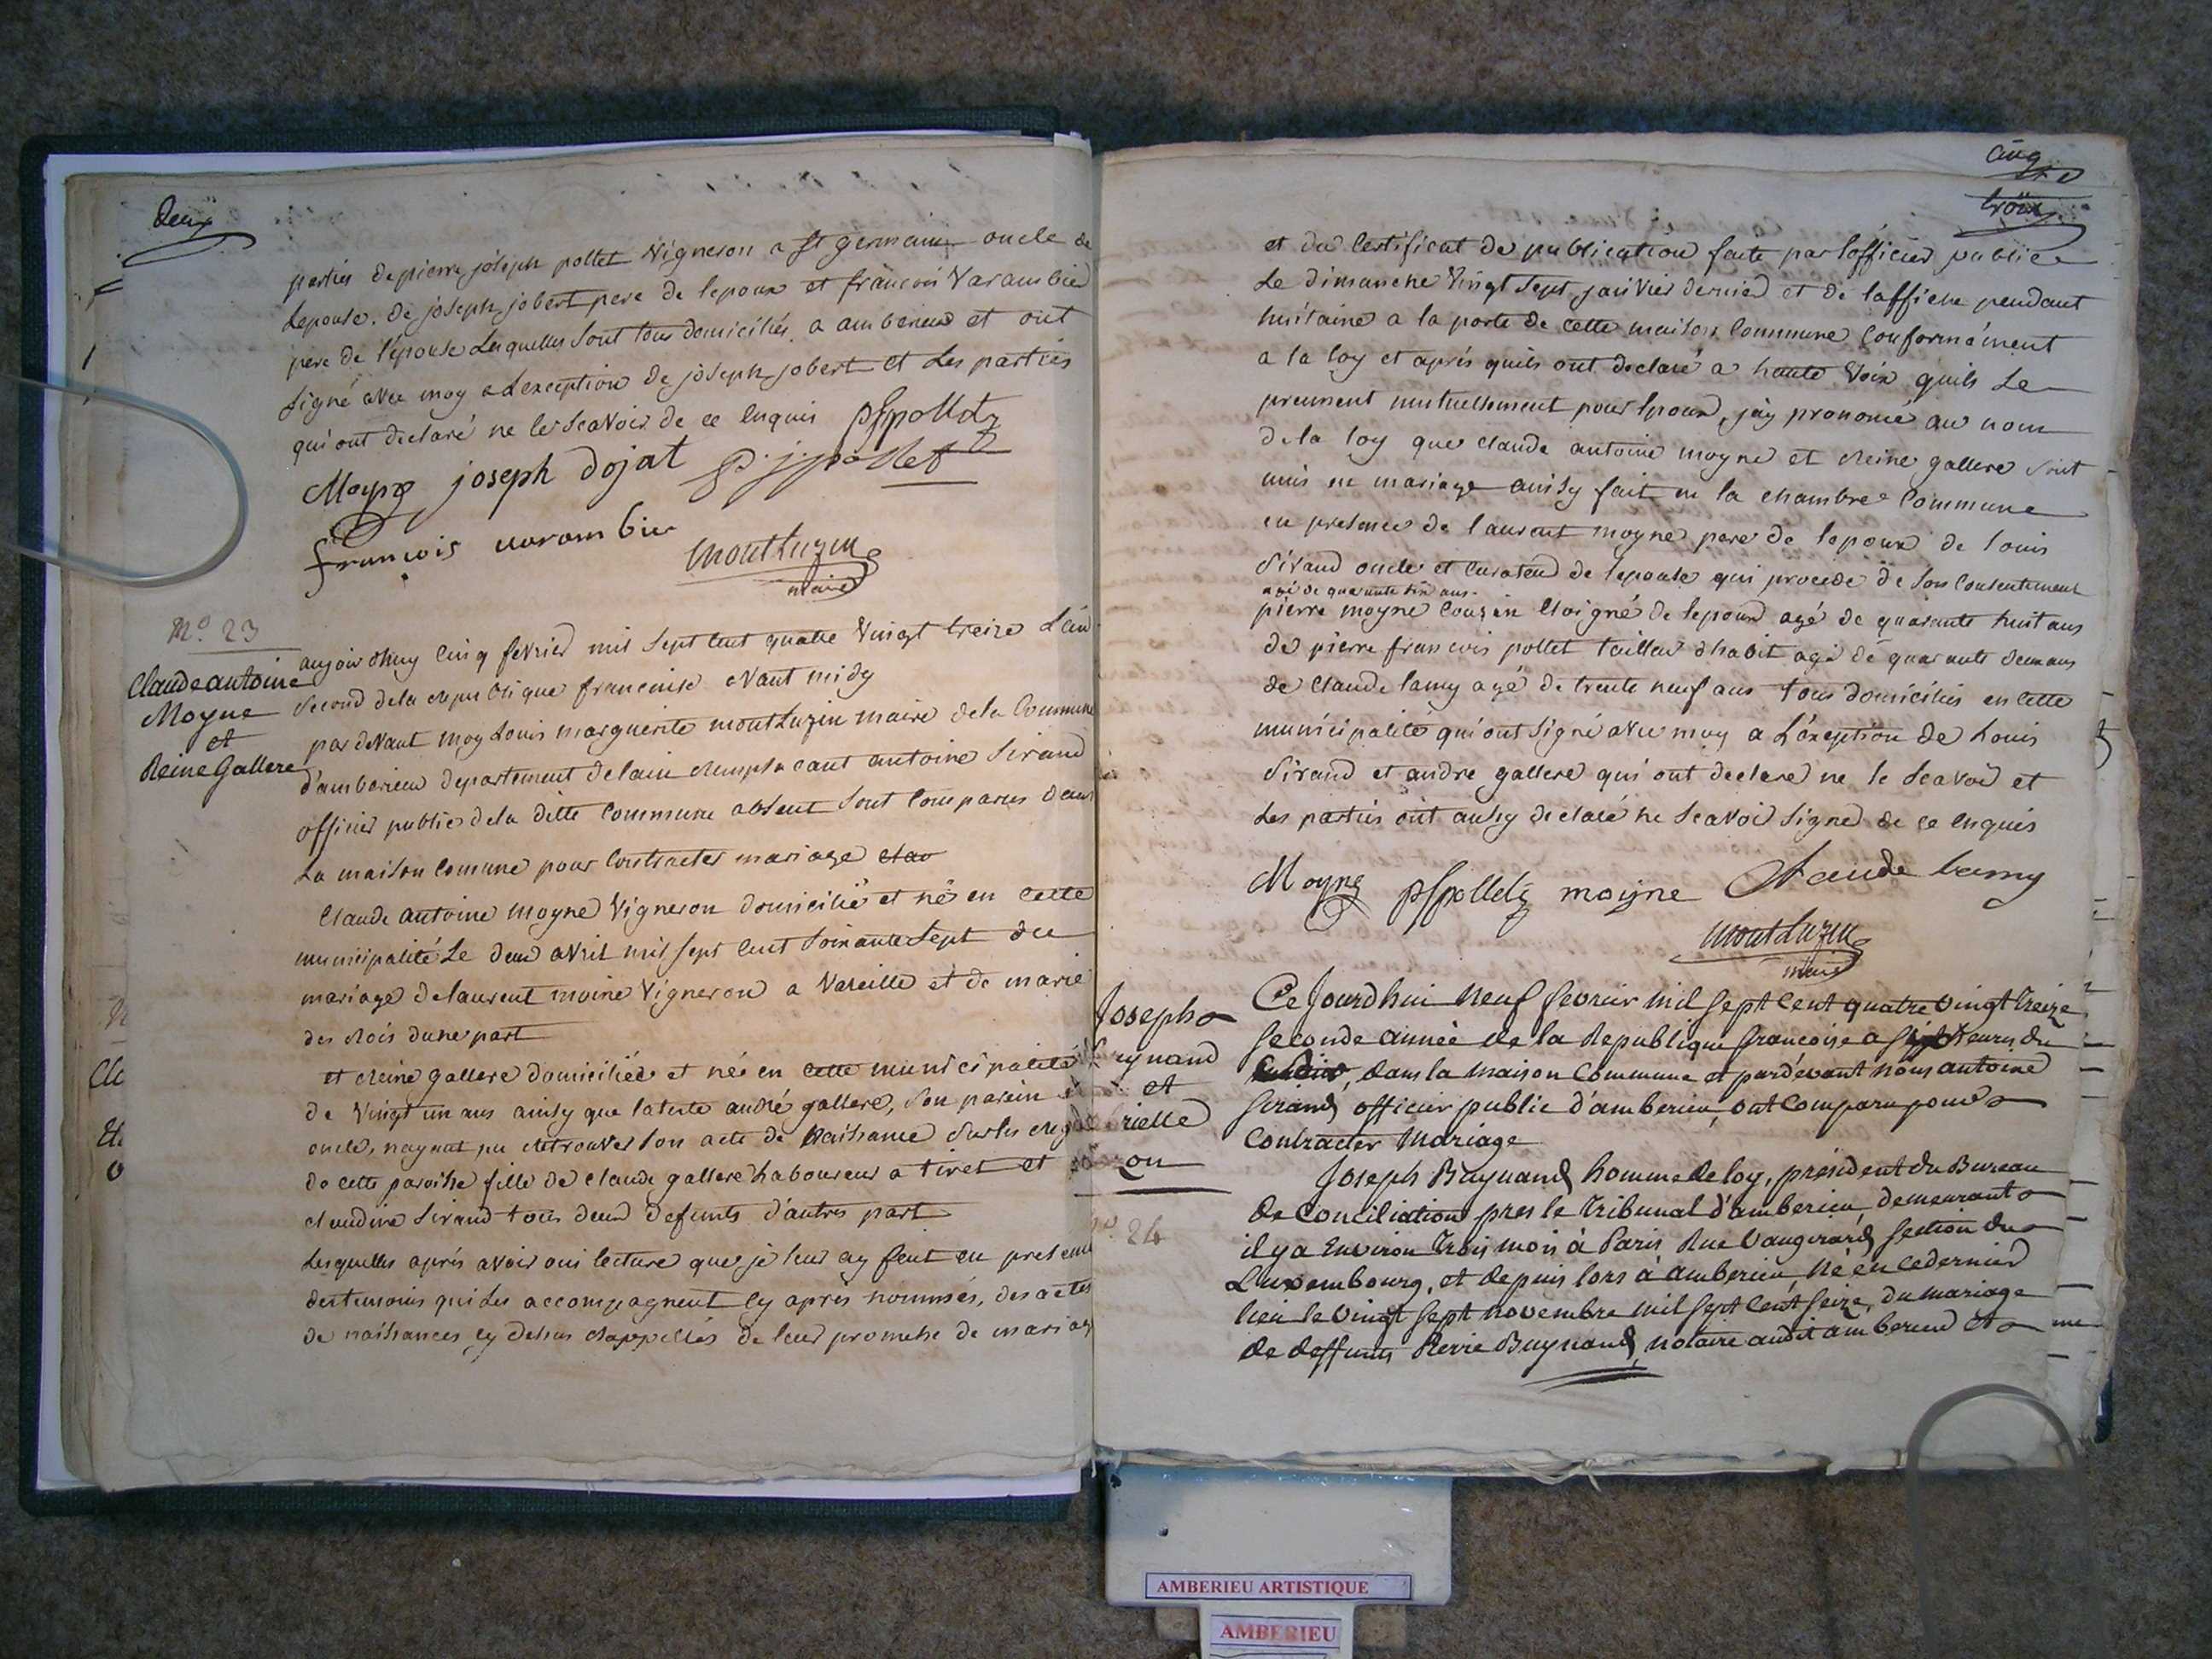 Deux
parties de pierre joseph pollet Vigneron a st germain oncle de
Lepouse. de joseph jobert pere de lepoux et francois Varambier
pere de l'épouse Lesquelles sont tous domiciliés a amberieu et ont
signé avec moy a Lexception de joseph jobert et Les parties
qui ont declaré ne le scavoir de ce enquis pfpollet
Moyne joseph dojat p. j. pollet
francois varambier
Montluzin
maire
No. 23
Claude antoine
Moyne
et
Reine Gallere
aujourdhuy cinq fevrier mil sept cent quatre Vingt treize L'an
second dela republique francoise avant midy
par devant moy Louis marguerite montLuzin maire dela Commune
d'amberieu departement delain remplacant antoine Sirand
officier public dela ditte Commune absent sont comparus dans
La maison Comune pour Contracter mariage
Claude antoine moyne Vigneron domicilié et né en cette
municipalité Le deux avril mil sept cent soixante sept du
mariage de laurent moine Vigneron a Vareille et de marie
des rois dune part
et reine gallere domiciliée et née en cette municipalité
de Vingt un ans ainsy que latteste andré gallere, son parain
oncle, nayant pu retrouver son acte de naissance sur les
de cette paroisse fille de claude gallere Laboureur a tiret et
claudine Sirand tous deux defunts d'autre part
Lesquelles aprés avoir oui lecture que je leur ay fait en presence
des temoins qui Les accompagnent cy aprés nommés, des actes
de naissances cy dessus rappellés de leur promesse de mariage
cinq
trois
et du Certificat de publication faite par l'officier public
Le dimanche Vingt sept janvier dernier et de laffiche pendant
huitaine a la porte de cette maison Commune Conformément
a la loy et aprés quils ont declaré a haute Voix quils se
prennent mutuellement pour Epoux, j'ay prononcé au nom
de la loy que claude antoine moyne et reine gallere sont
unis en mariage ainsy fait en la chambre Commune
en presence de laurent moyne pere de lepoux de Louis
Sirand oncle et Curateur de lepouse qui procede de son Consentement
agé de quarante six ans.
pierre moyne Cousin Eloigné de lepoux agé de quarante huit ans
de pierre francois pollet tailleur d'habit agé de quarante deux ans
de Claude lamy agé de trente neuf ans tous domiciliés en cette
municipalité qui ont signé avec moy a L'exception de Louis
Sirand et andré gallere qui ont declaré ne le scavoir et
Les parties ont aussy declaré ne scavoir signer de ce enquis
Moyne pfpollet moyne Claude lamy
Montluzin
maire
Joseph
et
No. 24
Ce Jourd'hui neuf fevrier mil sept cent quatre vingt treize
seconde année de la Republique francoise a sept heures du
dans la maison Commune et pardevant nous antoine
Sirand officier public d'amberieu, ont comparu pour
Contracter Mariage
Joseph Buynand homme de loy, président du Bureau
de Conciliation pres le tribunal d'amberieu, demeurant
il y a Environ trois mois à Paris Rue Vaugirard section du
Luxembourg, et depuis lors à amberieu, né en ce dernier
lieu le vingt sept novembre mil sept cent seize, du mariage
de deffunts Pierre Buynand, notaire audit amberieu et
AMBERIEU ARTISTIQUE
AMBERIEU